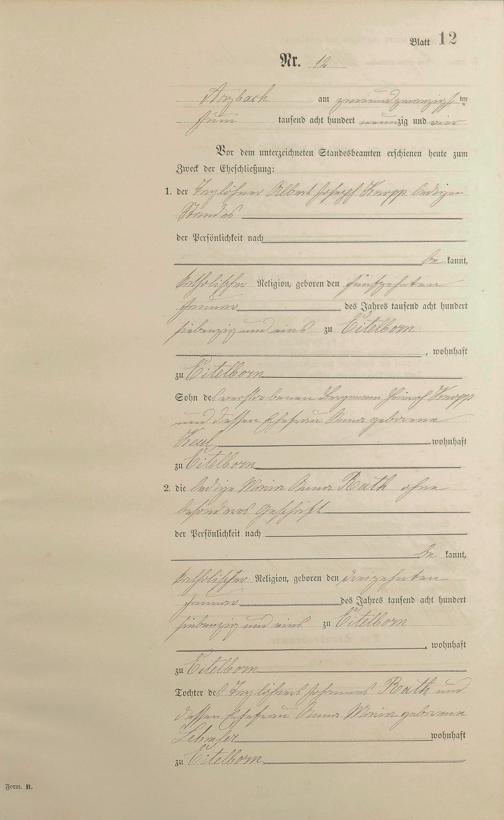 Blatt 12
Nr. 12
Arzbach am zweiundzwanzigsten
Juni tausend acht hundert neunzig und vier
Vor dem unterzeichneten Standesbeamten erschienen heute zum
Zweck der Eheschließung:
1. der Taglöhner Albert Joseph Knopp ledigen
Standes
der Persönlichkeit nach
be kannt,
katholischer Religion, geboren den fünfzehnten
Januar des Jahres tausend acht hundert
siebenzig und eins zu Eitelborn
, wohnhaft
zu Eitelborn
Sohn des verstorbenen Bergmann Heinrich Knopp
und dessen Ehefrau Anna geborene
wohnhaft
zu Eitelborn
2. die ledige Maria Anna Rath ohne
besonderes Geschäft
der Persönlichkeit nach
be kannt,
katholischer Religion, geboren den
Januar des Jahres tausend acht hundert
siebenzig und eins zu Eitelborn
, wohnhaft
zu Eitelborn
Tochter des Taglöhners Johannes Rath und
dessen Ehefrau Anna Maria geborene
wohnhaft
zu Eitelborn
Form. B.